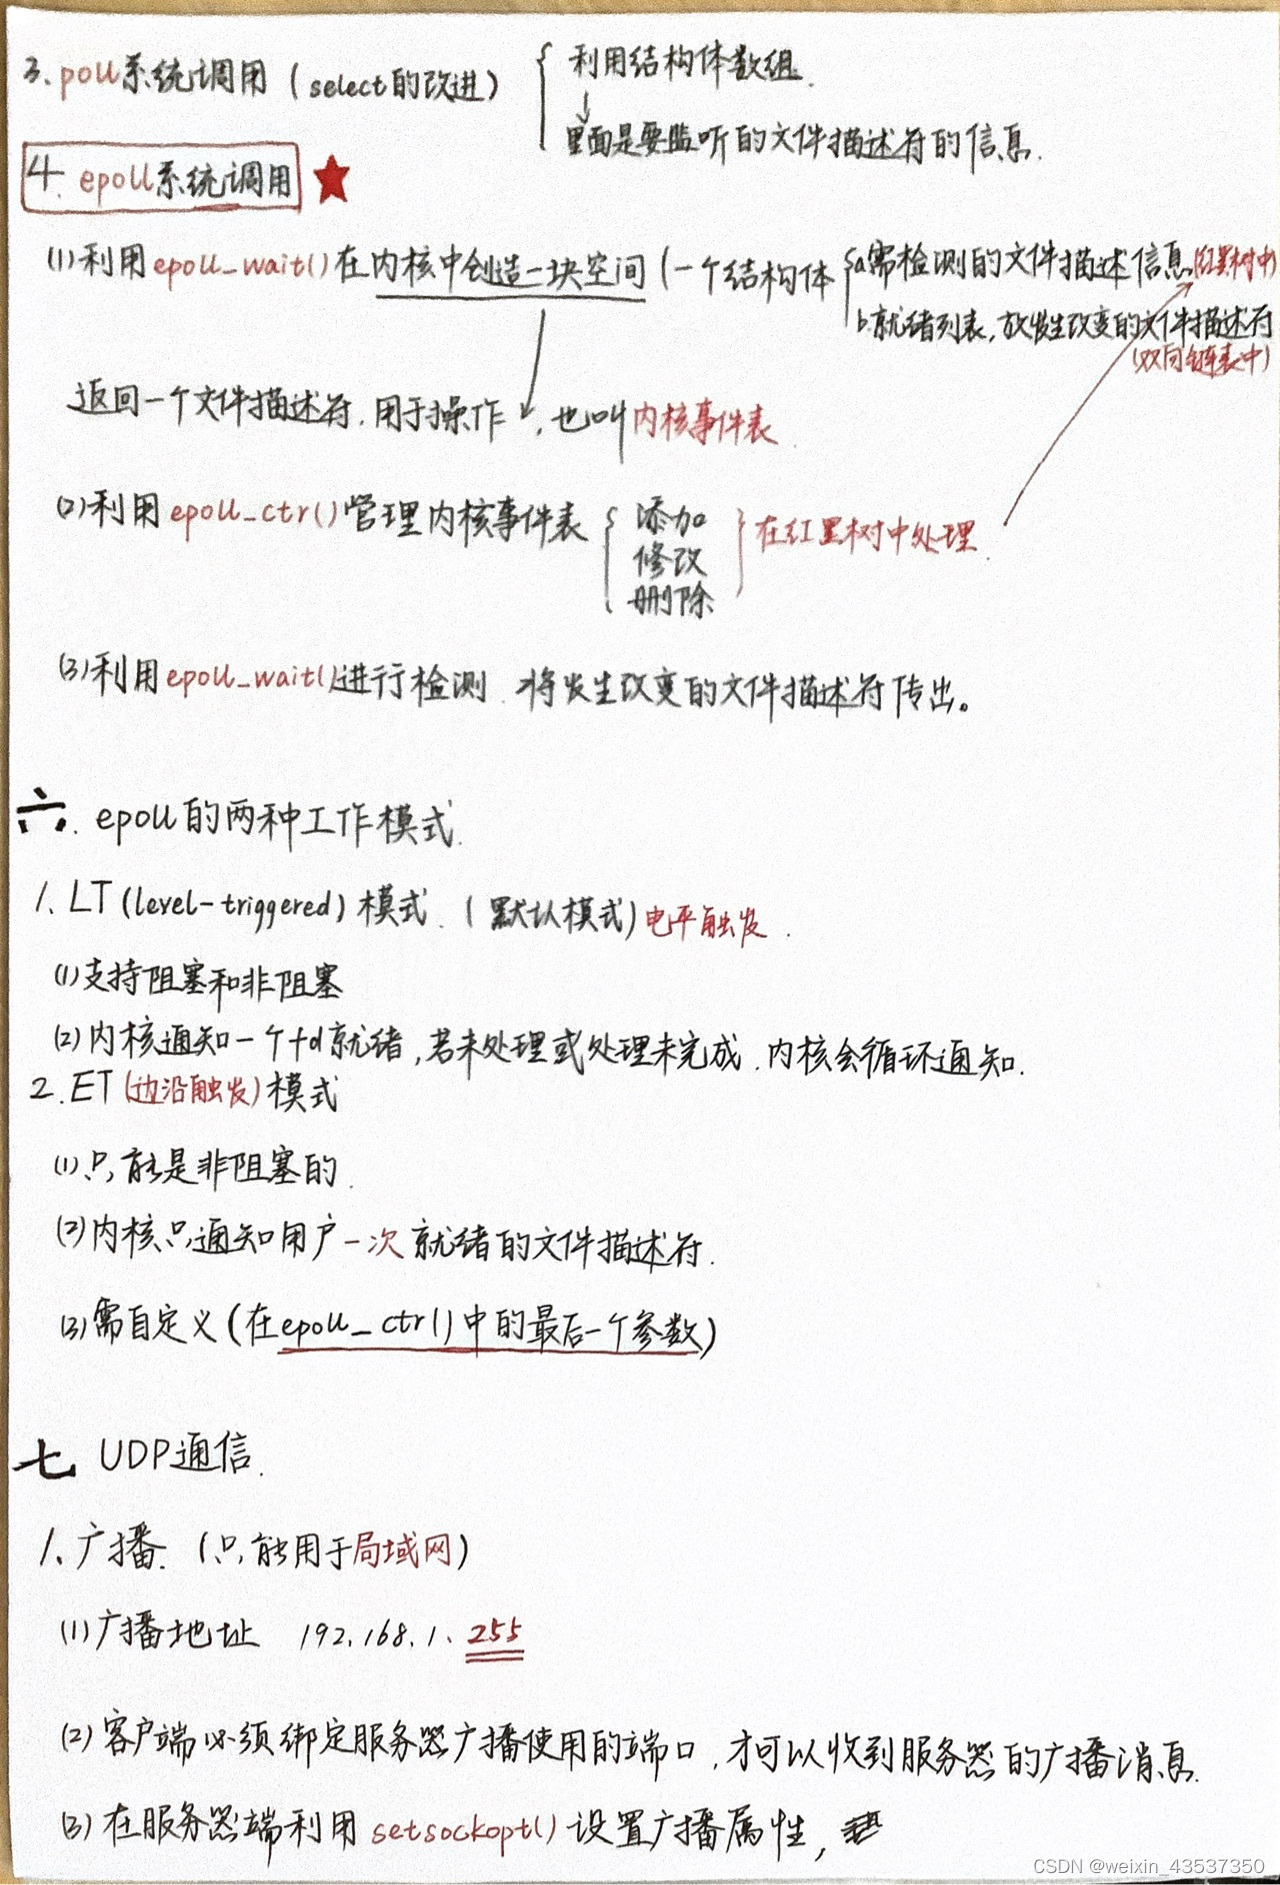 3、poll系统调用（select的改进）{ 利用结构体数组.
↓
里面是要监听的文件描述符的信息.
4. epoll系统调用 ★
(1)利用epoll_wait()在内核中创造一块空间(一个结构体{a需检测的文件描述信息(红黑树中)
b.就绪列表,放发生改变的文件描述符
(双向链表中)
返回一个文件描述符,用于操作 ,也叫内核事件表
(2)利用epoll_ctr()管理内核事件表{ 添加 } 在红黑树中处理.
修改
删除
(3)利用epoll_wait()进行检测.将发生改变的文件描述符传出。
六. epoll的两种工作模式.
1. LT(level-triggered)模式.(默认模式)电平触发.
(1)支持阻塞和非阻塞
(2)内核通知一个fd就绪,若未处理或处理未完成.内核会循环通知.
2.ET(边沿触发)模式
(1)只能是非阻塞的.
(2)内核只通知用户一次就绪的文件描述符.
(3)需自定义(在epoll_ctr()中的最后一个参数)
七 UDP通信.
1、广播.(只能用于局域网)
(1)广播地址 192.168.1.255
(2)客户端必须绑定服务器广播使用的端口,才可以收到服务器的广播消息.
(3)在服务器端利用setsockopt()设置广播属性,
CSDN @weixin_43537350